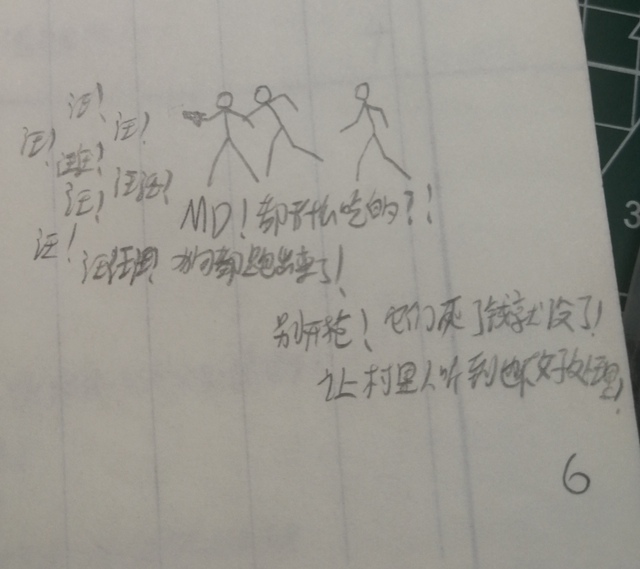 汪！
汪！
汪！
汪汪！
汪！
汪汪！
汪！
MD！都干什么吃的？！
汪汪汪！狗都跑出来了！
别开枪！它们死了钱就没了！
让村里人听到也不好处理！
6